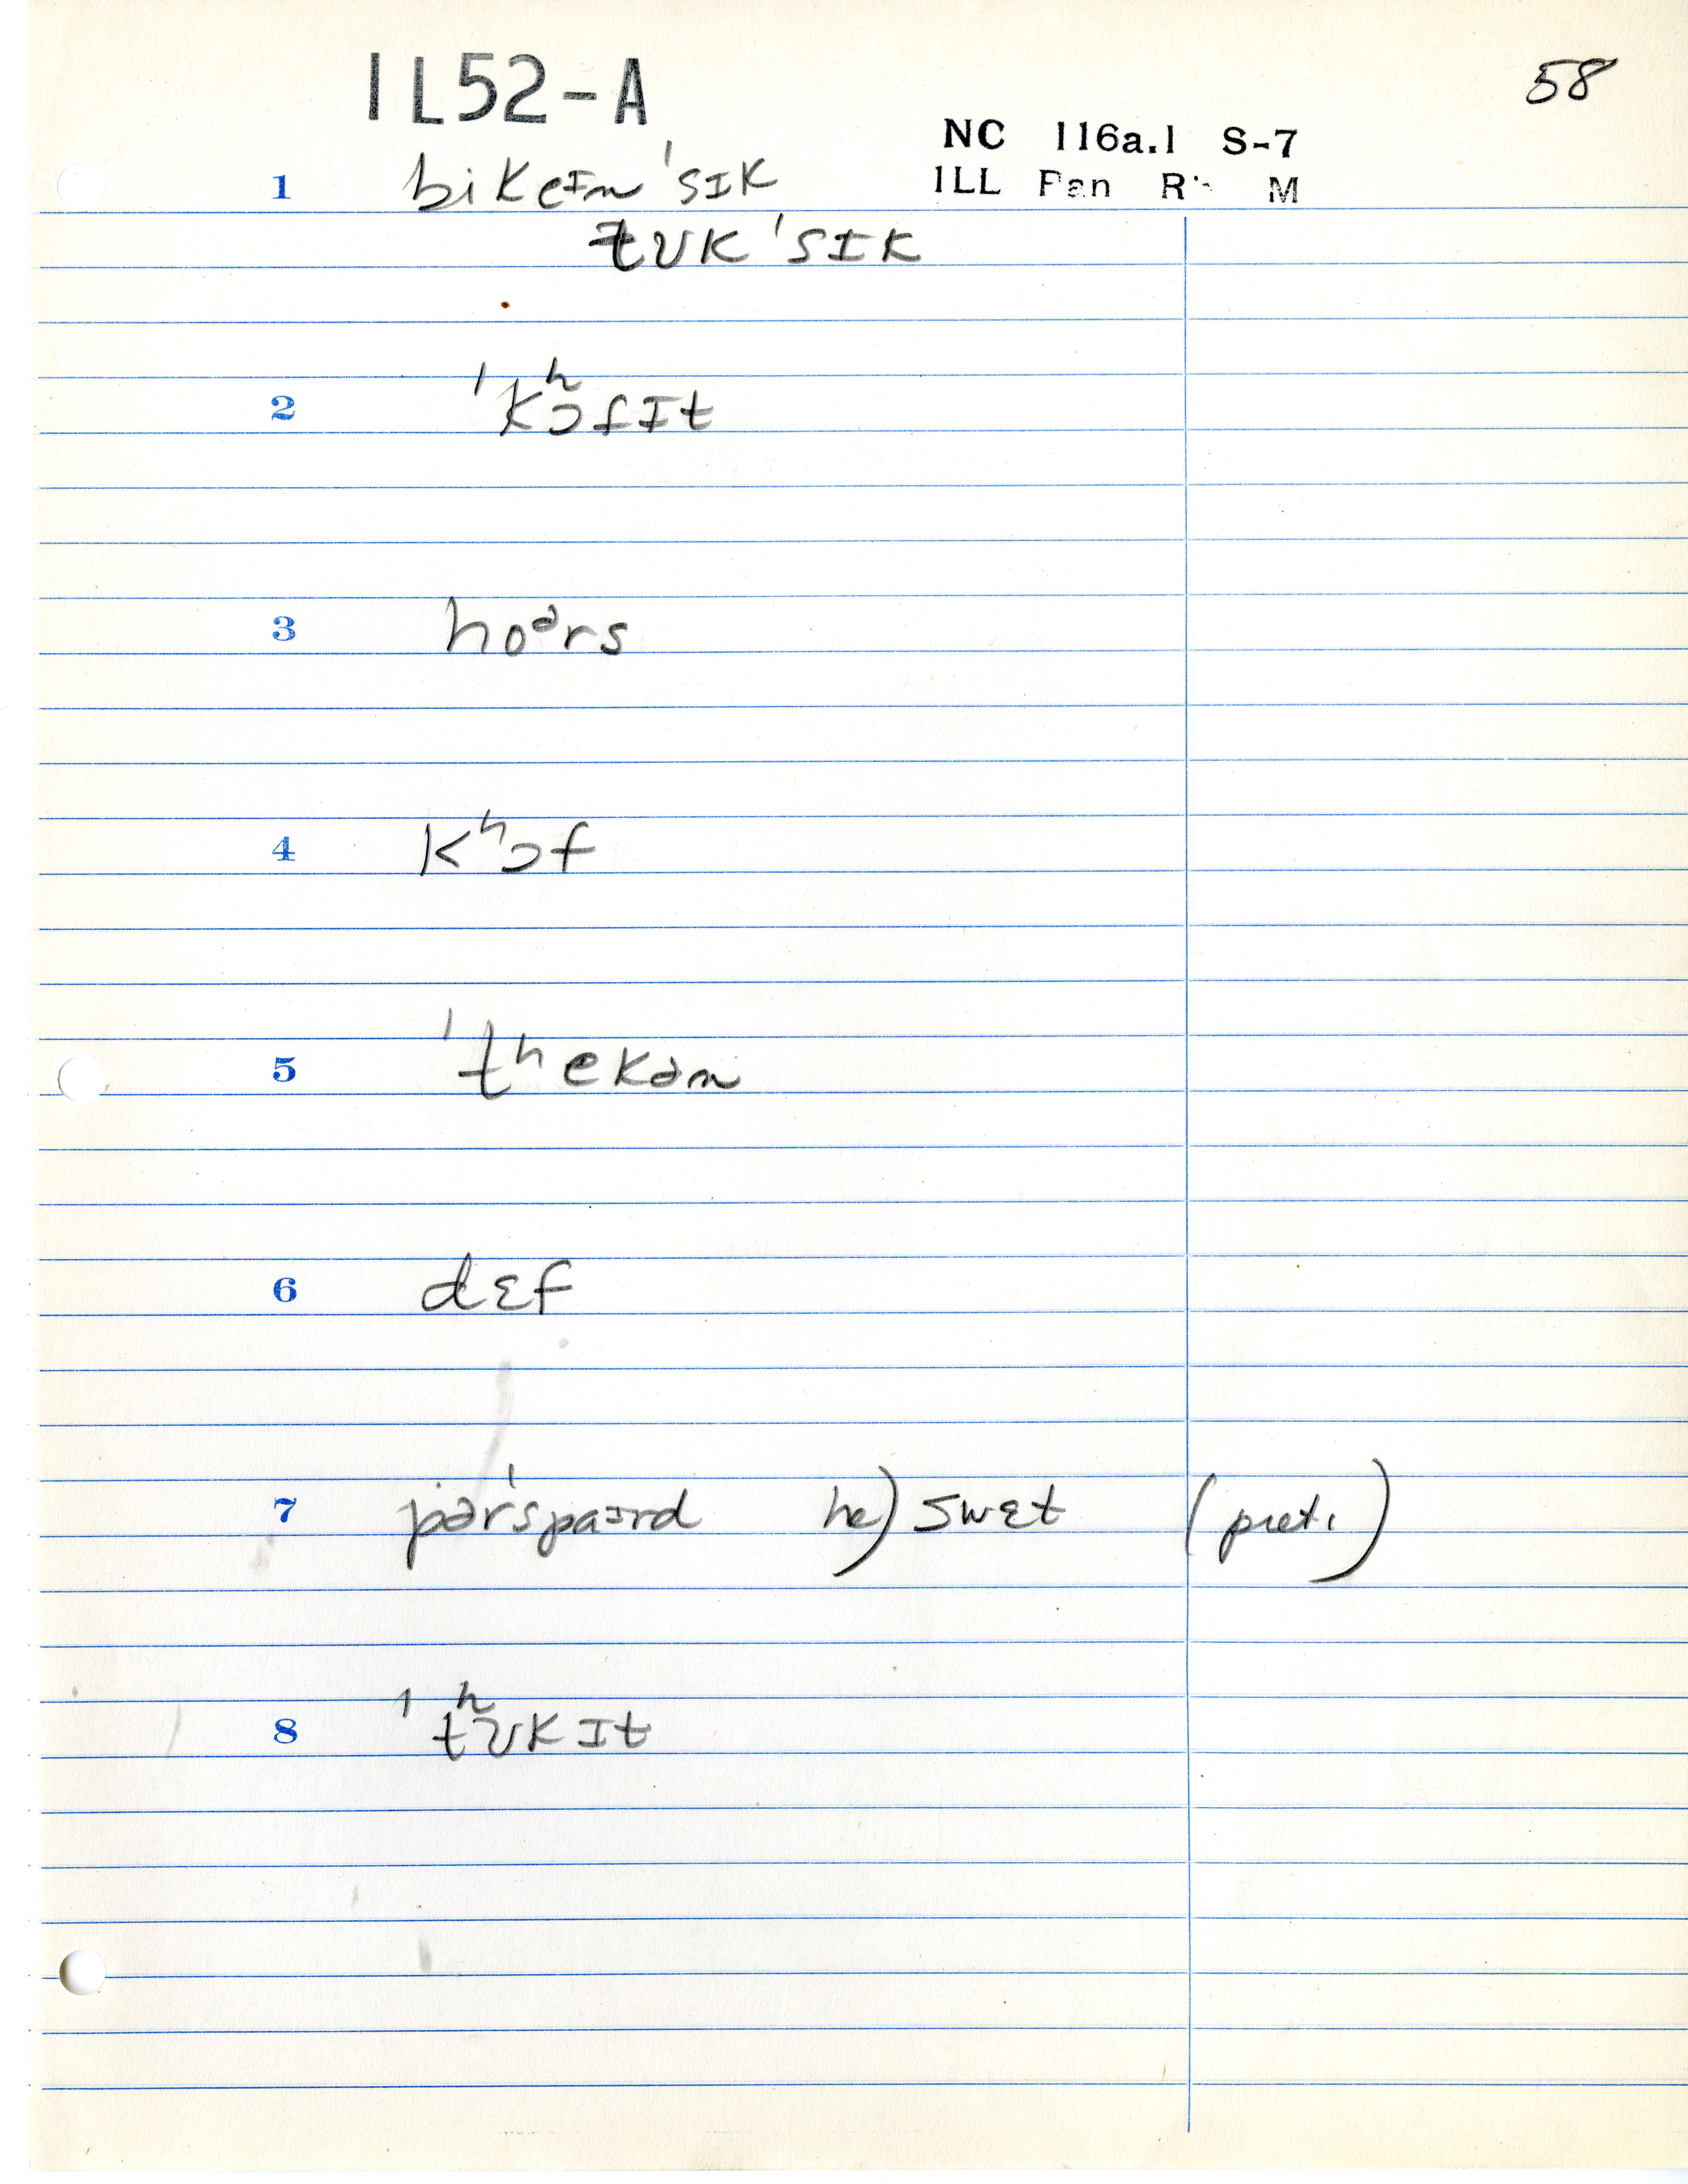 IL52-A
58
NC 116a.1 S-7
ILL Pan M
1 bikeɪm 'sɪk
tʊk 'sɪk
2 'kʰɔfɪt
3 hoᵊrs
4 kʰɔf
5 'tʰekən
6 dɛf
7 pər'spaɪrd he) swɛt (pret.)
8 'tʰʊkɪt